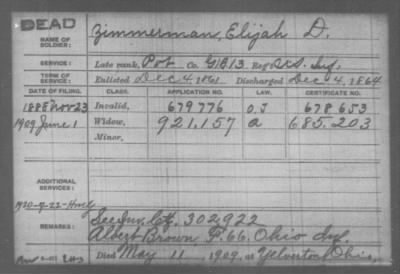 DEAD
NAME OF SOLDIER: Zimmerman, Elijah D.
SERVICE: Late rank, Pvt Co. G, B, 13, Reg't U.S. Inf.
TERM OF SERVICE: Enlisted Dec 4, 1861 Discharged Dec 4, 1864
DATE OF FILING. CLASS. APPLICATION NO. LAW. CERTIFICATE NO.
1888 Nov 23 Invalid, 679776 O.J 678.653
1909 June 1 Widow, 921.157 a 685.203
Minor,
ADDITIONAL SERVICES:
REMARKS: See Inv. Ctf. 302,922
Albert Brown F. 66. Ohio Inf.
Died May 11, 1909, at Yelverton, Ohio.